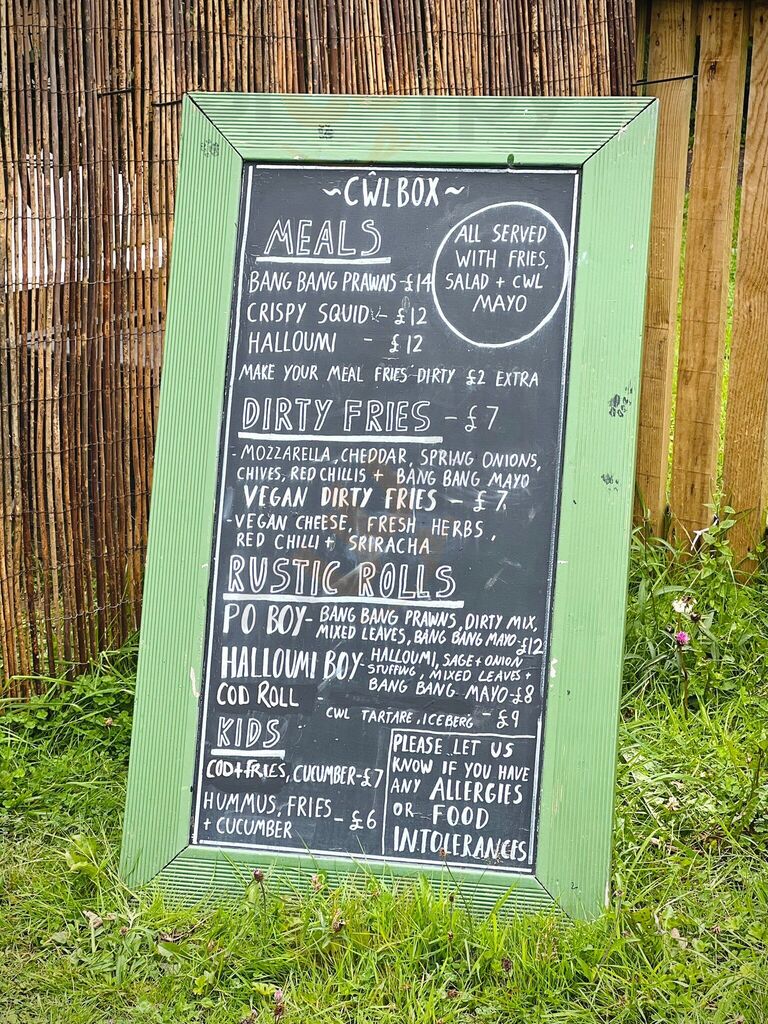 ~CŴLBOX~
MEALS
ALL SERVED
WITH FRIES,
SALAD + CWL
MAYO
BANG BANG PRAWNS - £14
CRISPY SQUID - £12
HALLOUMI - £12
MAKE YOUR MEAL FRIES DIRTY £2 EXTRA
DIRTY FRIES - £7
- MOZZARELLA, CHEDDAR, SPRING ONIONS,
CHIVES, RED CHILLIS + BANG BANG MAYO
VEGAN DIRTY FRIES - £7
- VEGAN CHEESE, FRESH HERBS,
RED CHILLI + SRIRACHA
RUSTIC ROLLS
PO BOY - BANG BANG PRAWNS, DIRTY MIX,
MIXED LEAVES, BANG BANG MAYO - £12
HALLOUMI BOY - HALLOUMI, SAGE + ONION
STUFFING, MIXED LEAVES +
BANG BANG MAYO - £8
COD ROLL
CWL TARTARE, ICEBERG - £9
KIDS
COD + FRIES, CUCUMBER - £7
HUMMUS, FRIES
+ CUCUMBER - £6
PLEASE LET US
KNOW IF YOU HAVE
ANY ALLERGIES
OR FOOD
INTOLERANCES